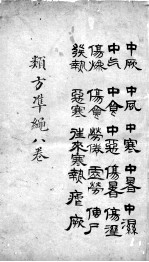 中厥 中風 中寒 中暑 中濕
中气 中食 中惡 傷暑 傷溼
傷燥 傷食 勞倦 虛勞 伸尸
發熱 惡寒 往來寒熱 瘧 厥
類方準繩八卷